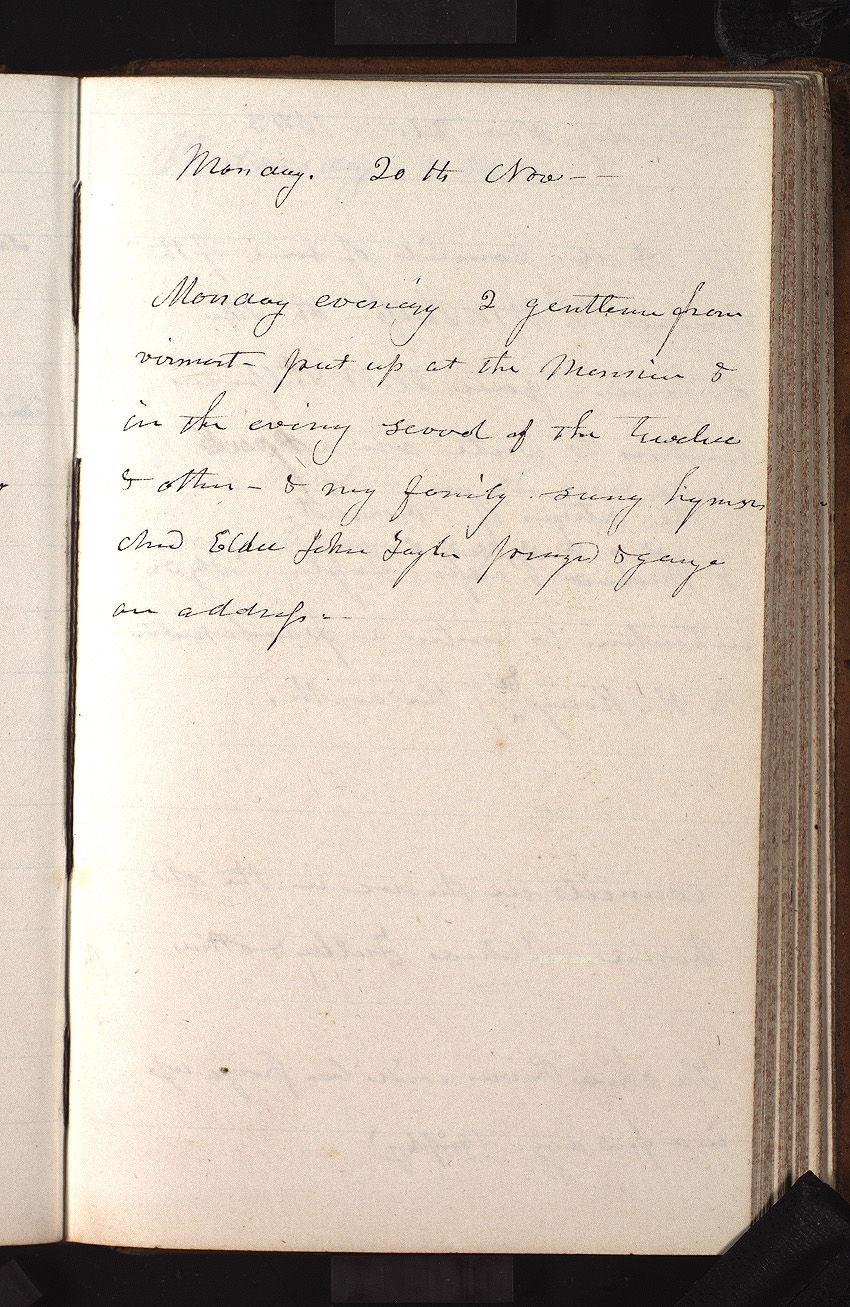 Monday. 20 th Nov - -
Monday evening 2 gentlemen from
virmont - put up at the Mansion &
in the evening sevred of the twelve
& other - & my family sung hymns
and Elder John Taylor prayed & gave
an address. -